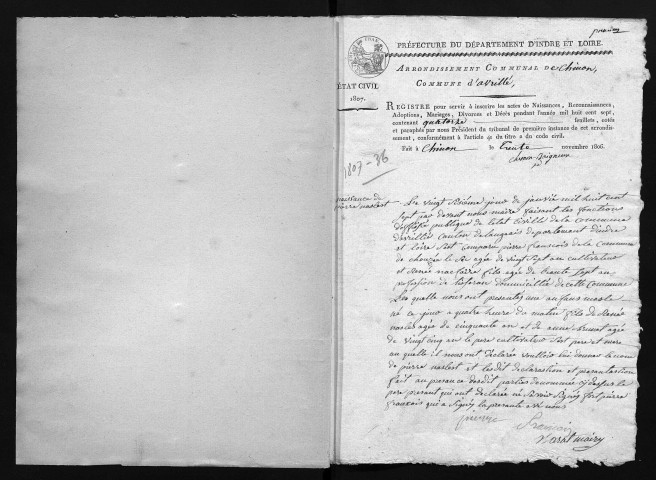 premier
PRÉFECTURE DU DÉPARTEMENT D'INDRE ET LOIRE.
ARRONDISSEMENT COMMUNAL DE Chinon,
COMMUNE d'avrillé,
ÉTAT CIVIL
1807.
REGISTRE pour servir à inscrire les actes de Naissances, Reconnaissances,
Adoptions, Mariages, Divorces et Décès pendant l'année mil huit cent sept,
contenant quatorze feuillets, cotés
et paraphés par nous Président du tribunal de première instance de cet arrondis-
sement, conformément à l'article 41 du titre 2 du code civil.
Fait à Chinon le trente novembre 1806.
1807-36
naissance de
pierre naslest
Le vingt sixième jour de janvie mil huit cent
sept par devant nous maire faisant les fonctions
publique de l'etat civille de la commune
davrillé canton de langeais departement d'indre
et loire est comparu pierre francois de la commune
de agée de vingt sept an cultivateur
et Renée fils agée de trente sept an
profession de domicillié de cette commune
Les quelle nous ont presentés une anfans masle
né ce jour a quatre heure du matin fils de Renée
naslest agée de cinquante an et de anne agée
de vingt cinq an le pere cultivateur pere et mere
au quelle il nous ont declarés voulloir lui donner le nom
de pierre naslest et lesdit declaration et presantation
fait au presance desdit parties denommée cy desus le
pere presant qui ont declarée ne savoir signé fort pierre
francois qui a signé la presante avec nous
pierre francois